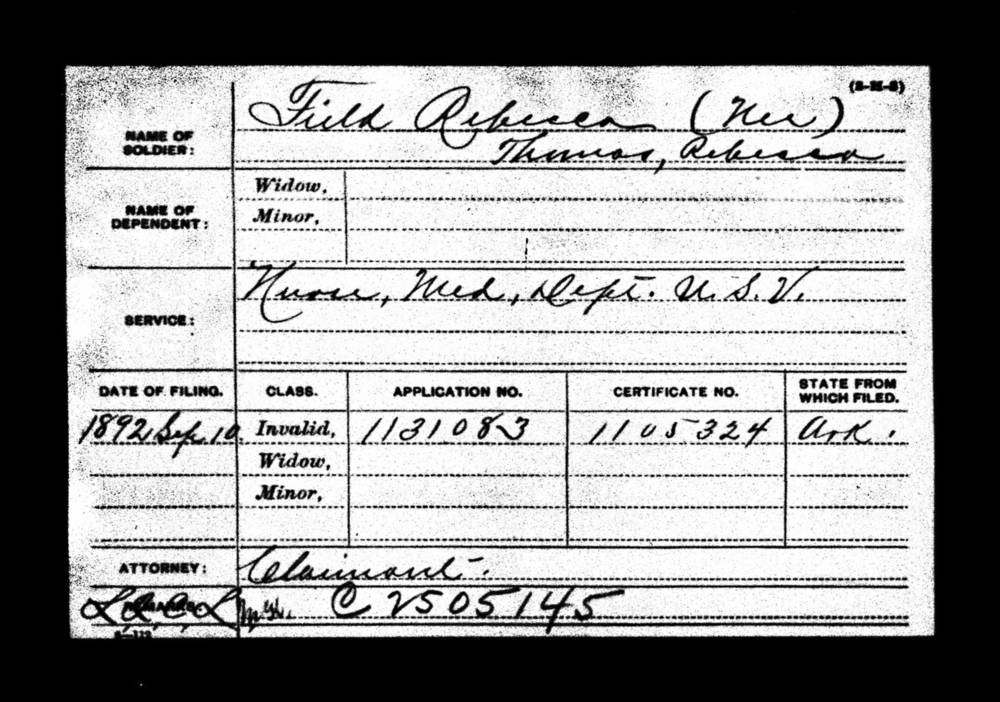 (3-14-3)
NAME OF SOLDIER: Field Rebecca (Nee)
Thomas, Rebecca
NAME OF DEPENDENT: Widow,
Minor,
SERVICE: Nurse, Med, Dept. U.S.V.
DATE OF FILING. CLASS. APPLICATION NO. CERTIFICATE NO. STATE FROM WHICH FILED.
1892 Sep. 10. Invalid, 1131083 1105324 Ark.
Widow,
Minor,
ATTORNEY: Claimant.
C 2505145